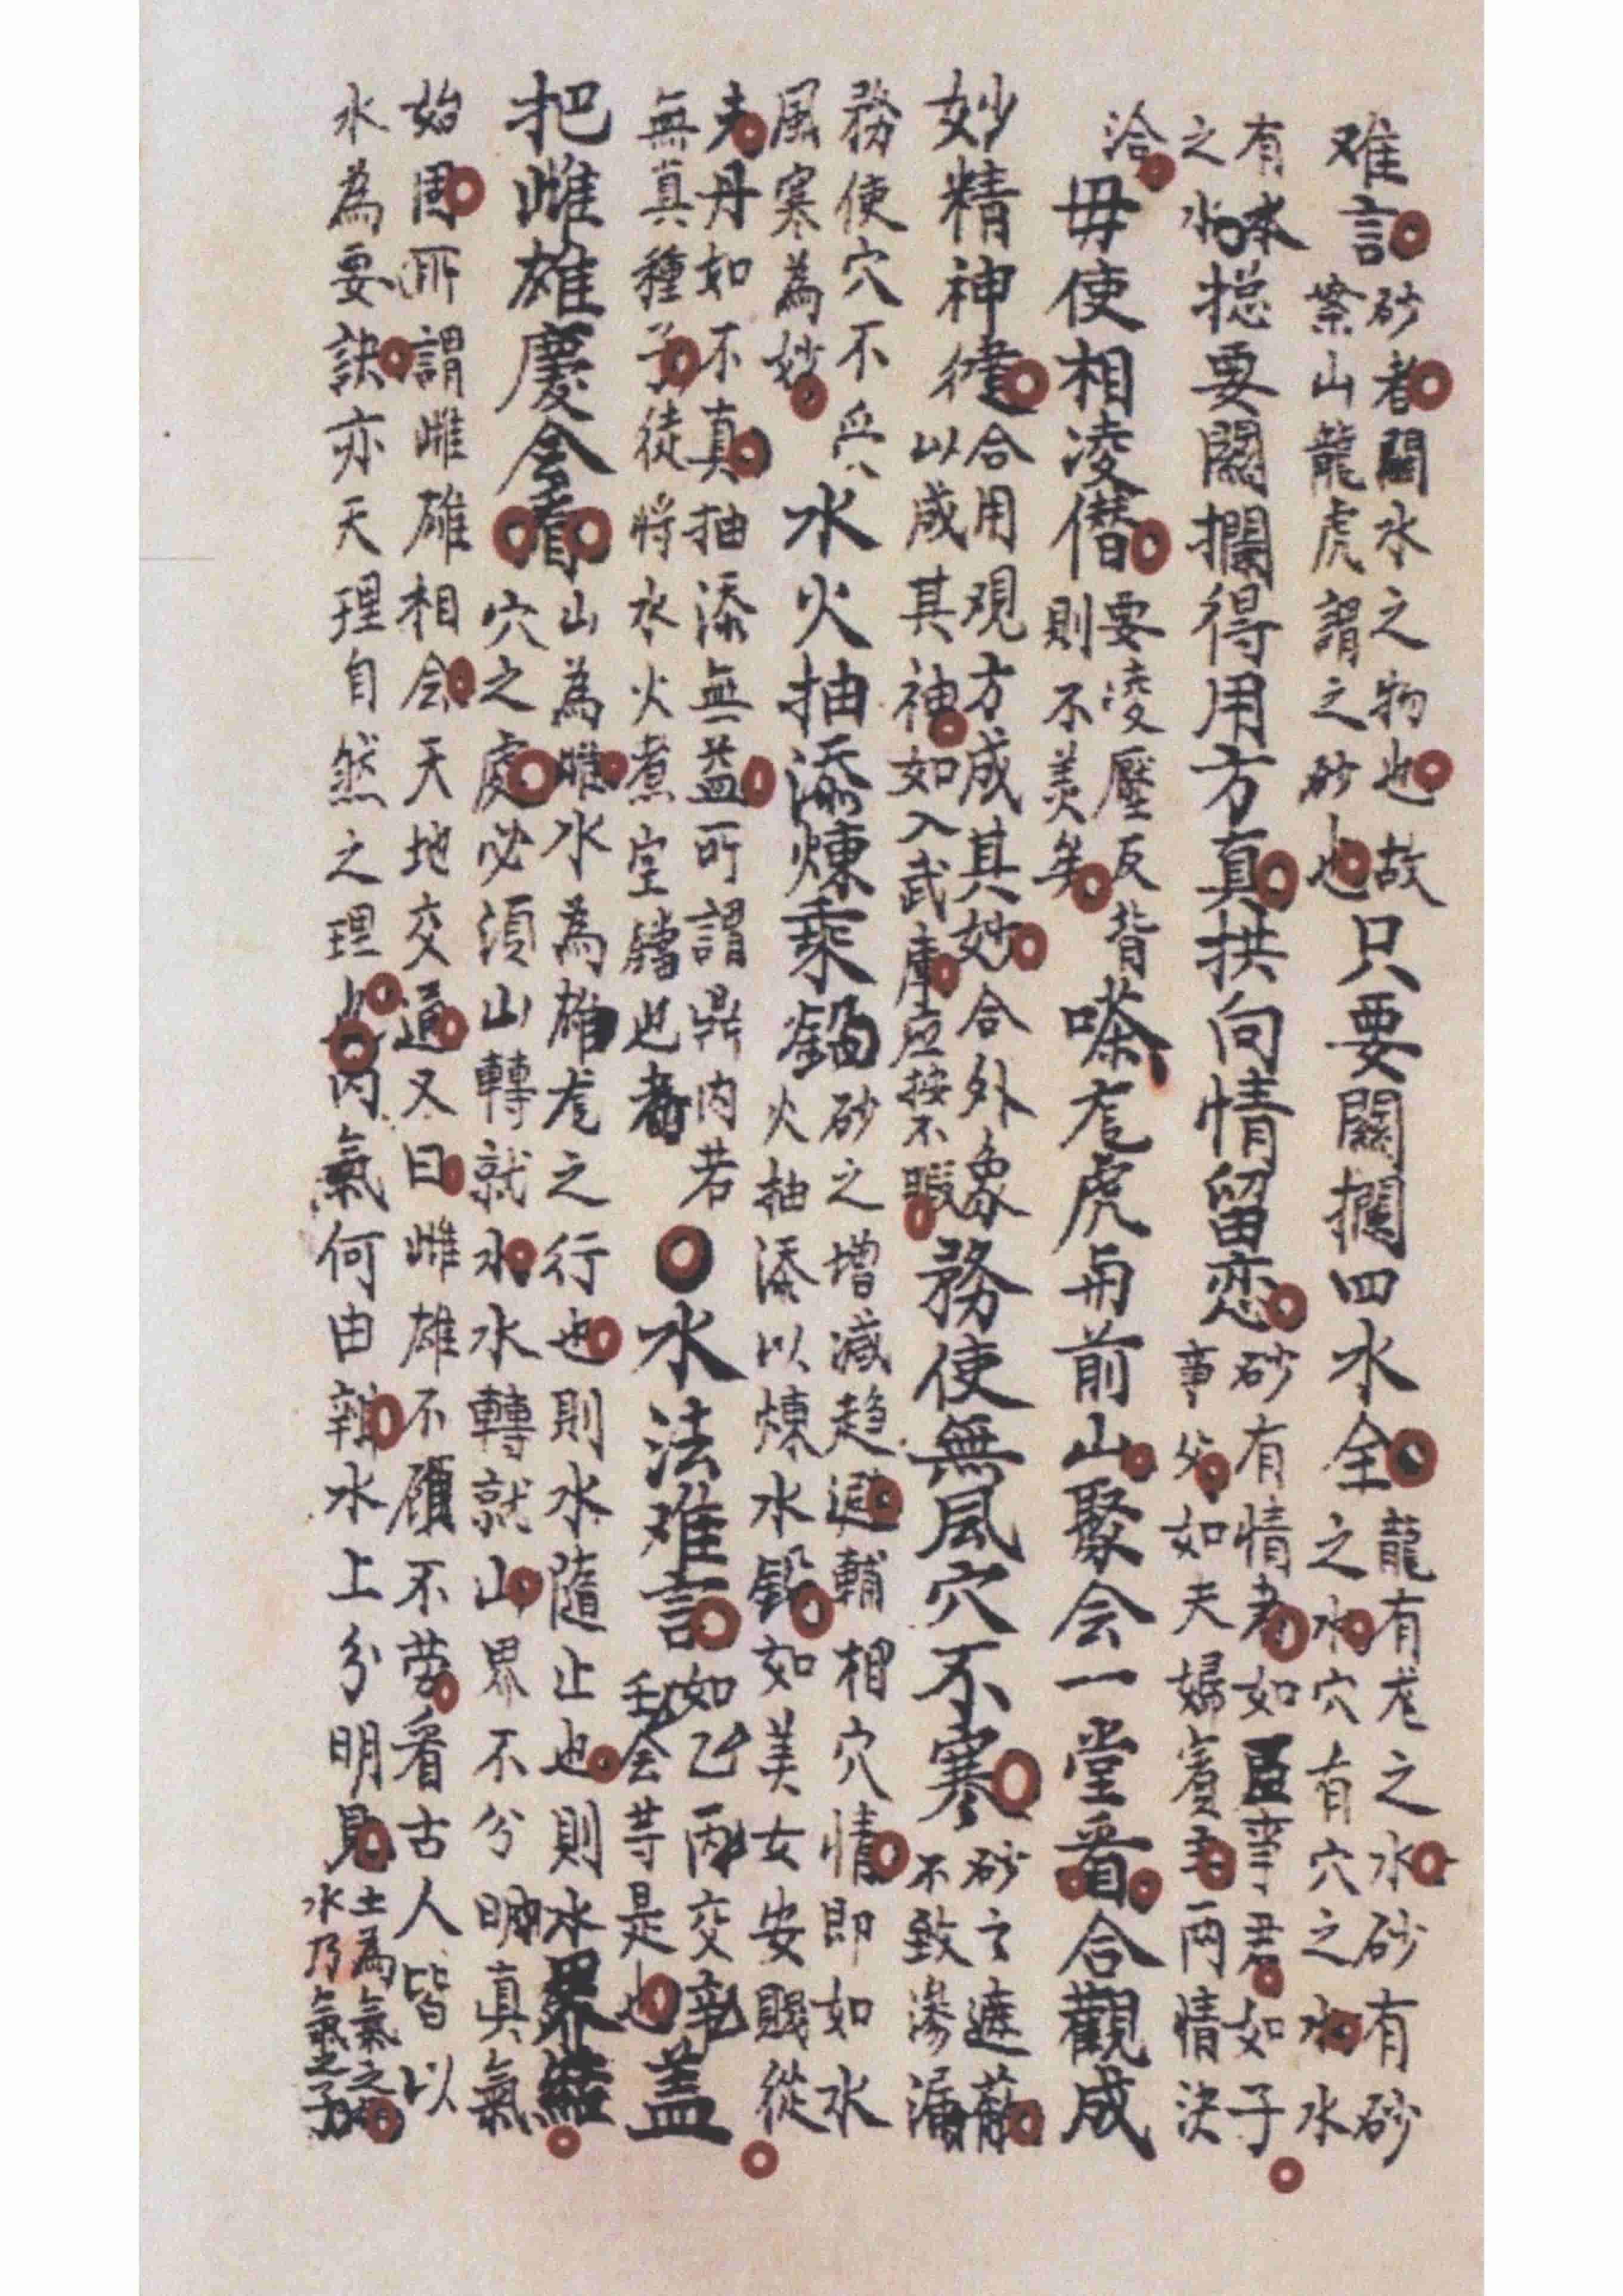 难言
砂者關水之物也故
案山龍虎謂之砂也
只要關攔四水全
龍有龙之水砂有砂
之水穴有穴之水水
有本
之水
捴要關攔得用方真拱向情留恋
砂有情者如臣事君如子
事父如夫婦賓主两情決
洽
毋使相凌僭
要凌壓反背
則不美矣
嗏龙虎与前山聚会一堂看合觀成
妙精神徤
合用現方成其妙合外象
以咸其神如入武庫应按不暇
務使無風穴不寒
砂之遮蔽
不致滲漏
務使穴不受
風寒為妙
水火抽添煉汞鈆
砂之增减趋避輔相穴情即如水
火抽添以煉水鈆如美女安賤從
夫丹如不真抽添無益所謂鼎内若
無真種子徒将水火煮空鐺也者
水法难言
如乙丙交
壬会等是也
盖
把雌雄慶会看
山為雌水為雄龙之行也則水隨止也則水界
穴之處必須山轉就水水轉就山界不分明真氣
始固所謂雌雄相会天地交通又曰雌雄不顧不劳看古人皆以
水為要訣亦天理自然之理也内氣何由辨水上分明見
土為氣之母
水乃氣之子